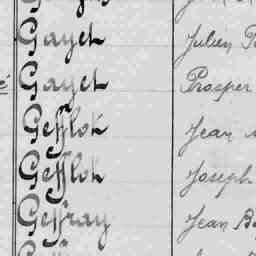 Gayet Julien
Gayet Prosper
Gefflok Jean
Gefflok Joseph
Geffray Jean